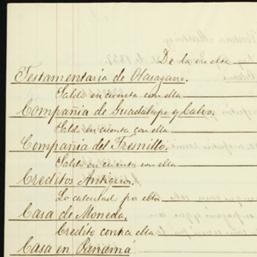 De la vuelta
Testamentaria de Olazagarre.
Saldo en cuenta con ella
Compañia de Guadalupe y Calvo.
Saldo en cuenta con ella
Compañia del Fresnillo.
Saldo en cuenta con ella
Creditos Antiguos.
Lo calculado por ellos
Casa de Moneda.
Credito contra ella
Casa en Panamá